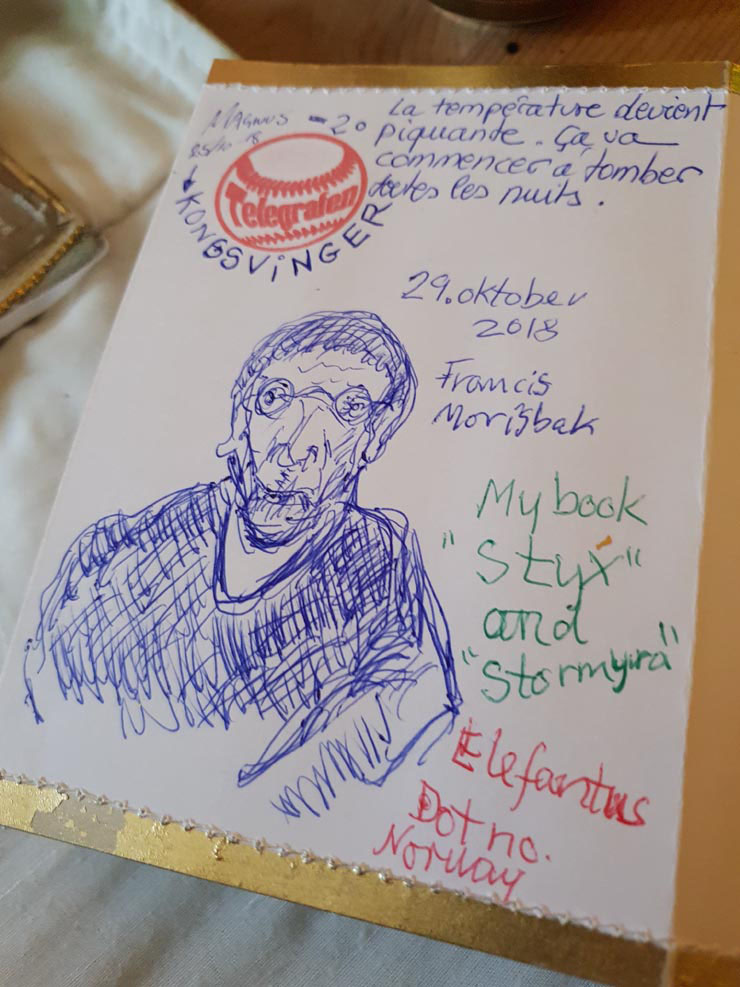 Magnus
25/10-18
-2°
La température devient
piquante. Ça va
commencer à tomber
toutes les nuits.
Telegrafen
KONGSVINGER
29.oktober
2018
Francis
Morisbak
My book
"Styx"
and
"Stormyra"
Elefantus
Dot no.
Norway